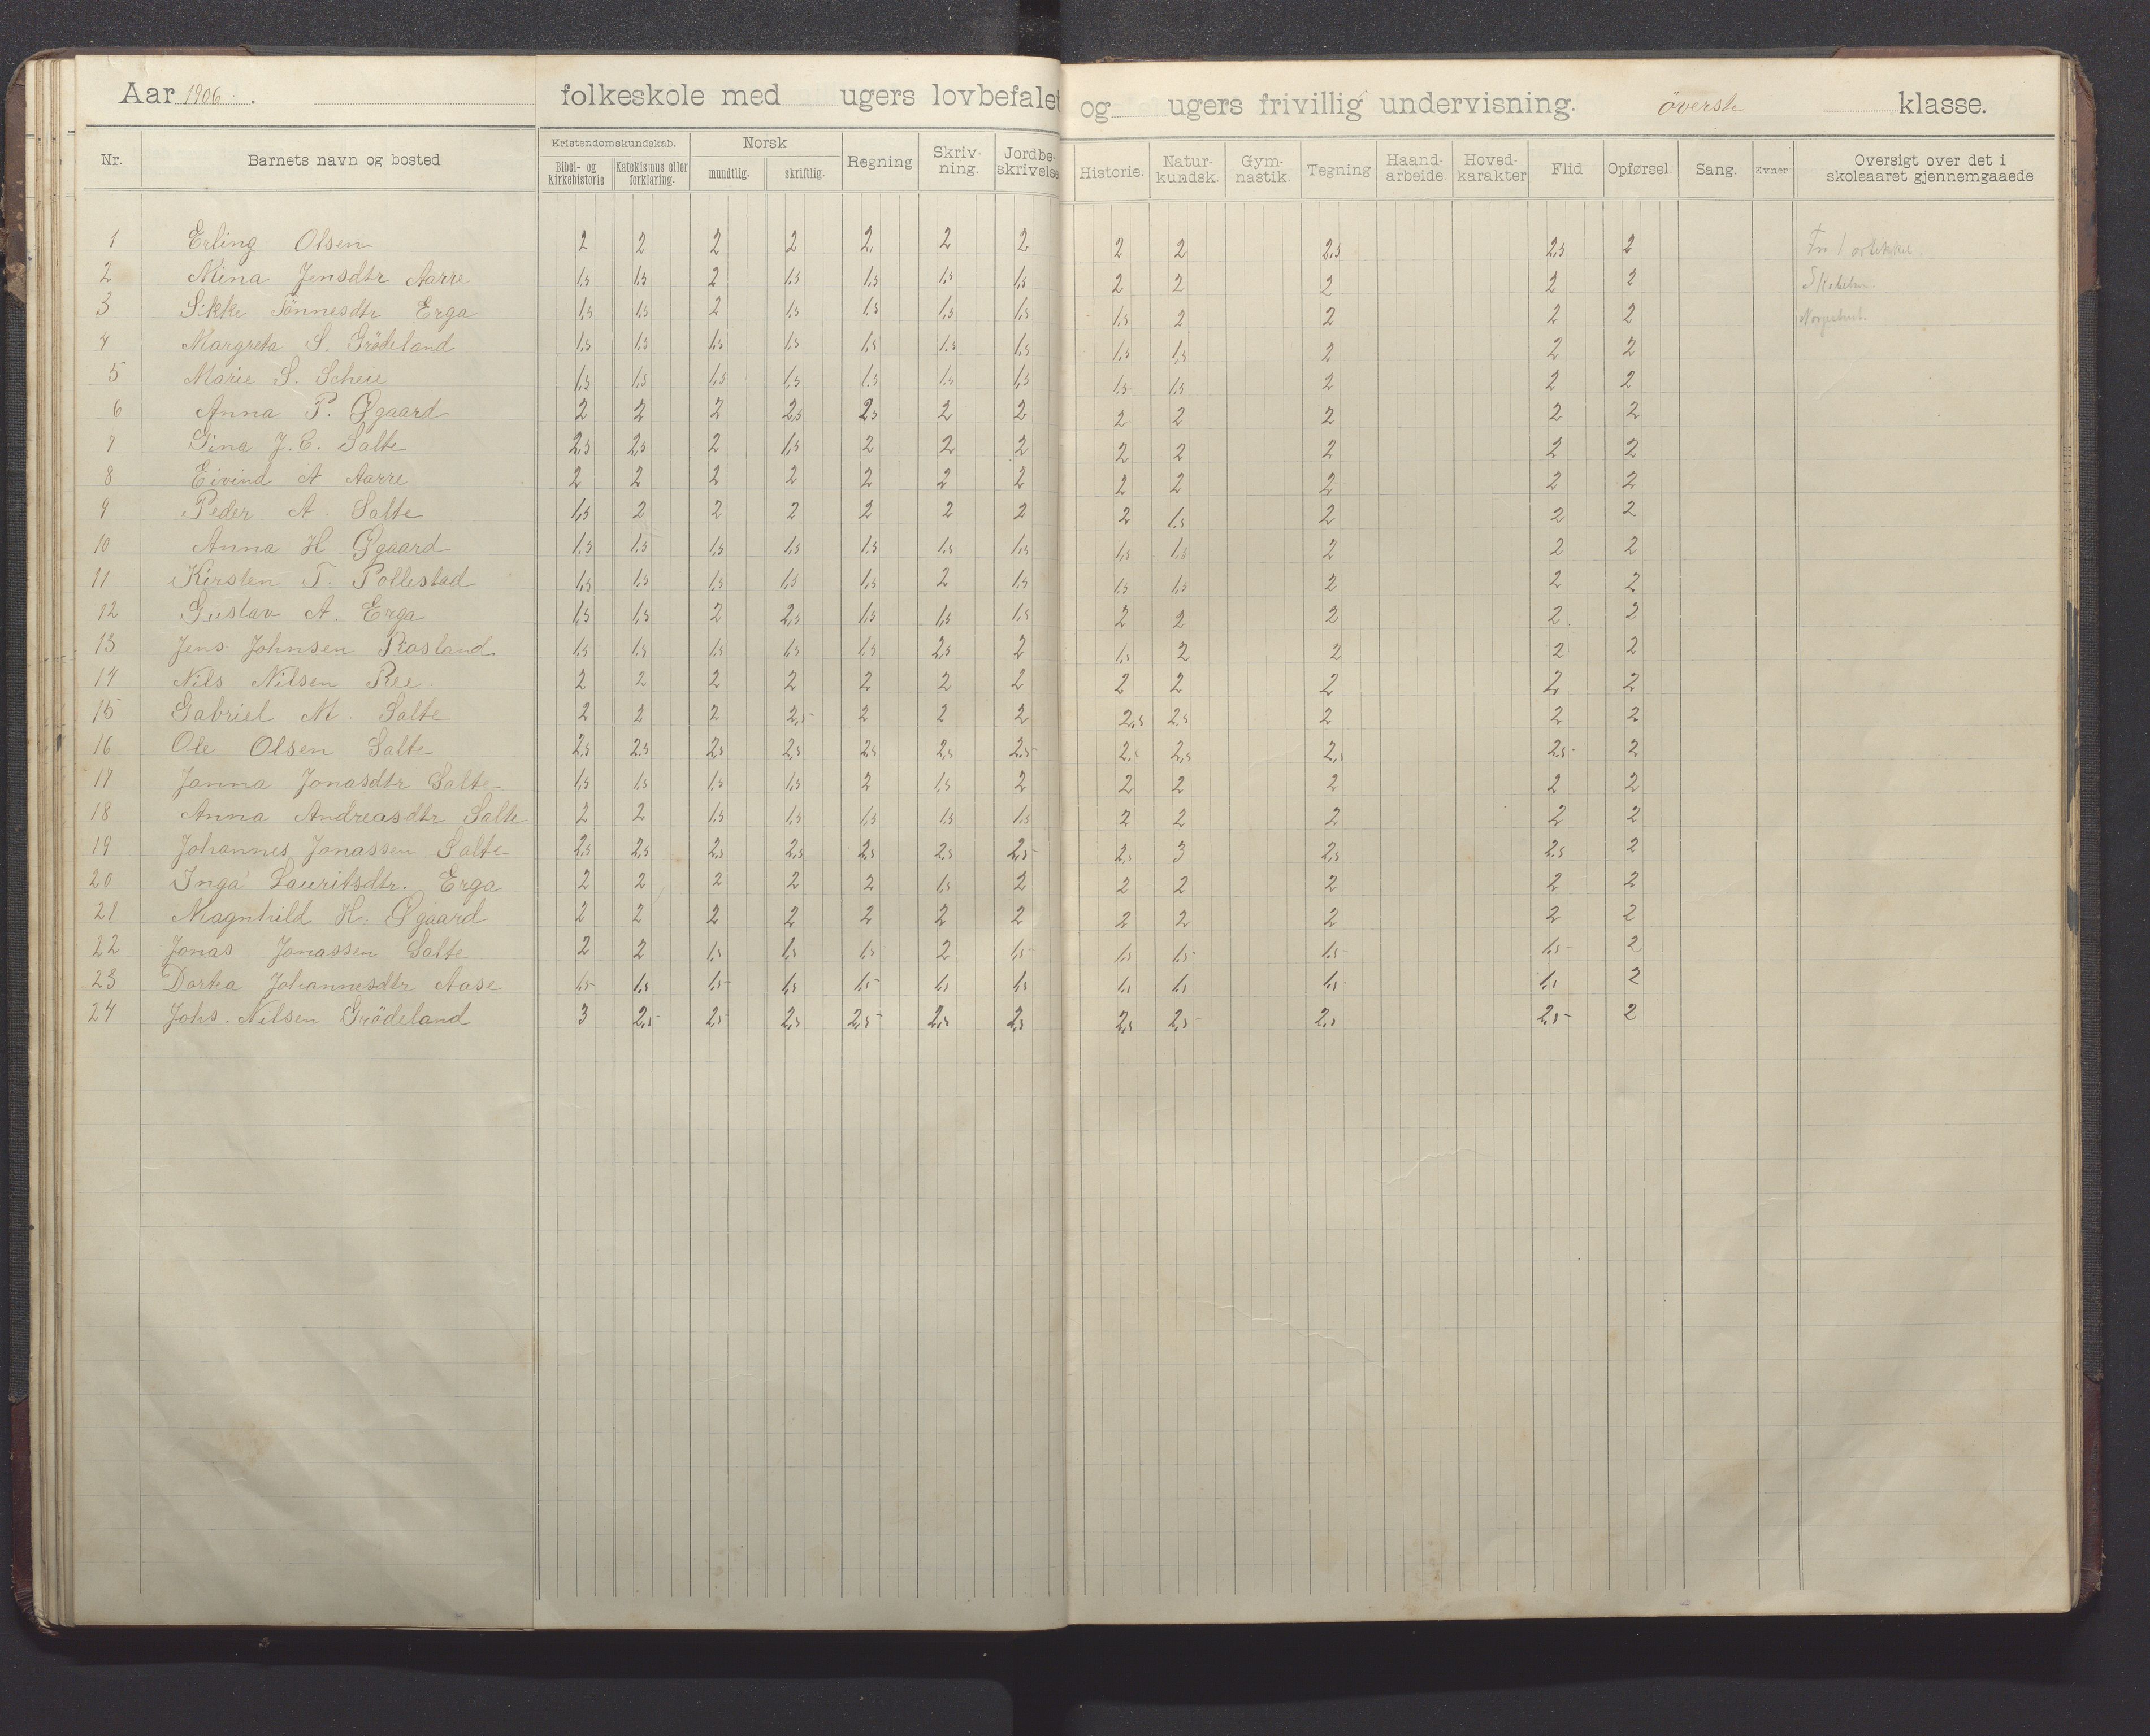 Aar 1906. folkeskole med ugers lovbefalet og ugers frivillig undervisning. överste klasse.
Nr. Barnets navn og bosted Kristendomskundskab. Bibel- og kirkehistorie Katekismus eller forklaring. Norsk mundtlig. skriftlig. Regning Skriv-ning. Jordbe-skrivelse Historie. Natur-kundsk. Gym-nastik Tegning Haand-arbeide Hoved-karakter Flid Opførsel Sang. Evner Oversigt over det i skoleaaret gjennemgaaede
1 Erling Olsen 2 2 2 2 2, 2 2, 2 2 2,5 2,5 2
2 Mina Jensdtr Aarre 1,5 1,5 2 1,5 1,5 1,5 1,5 2 2 2 2 2
3 Sikke Tönnesdtr Erga 1,5 1,5 2 1,5 1,5 1,5 1,5 1,5 2 2 2 2
4 Margreta S. Grödeland 1,5 1,5 1,5 1,5 1,5 1,5 1,5 1,5 1,5 2 2 2
5 Marie S. Scheie 1,5 1,5 1,5 1,5 1,5 1,5 1,5 1,5 1,5 2 2 2
6 Anna P. Øgaard 2 2 2 2,5 2,5 2 2 2 2 2 2 2
7 Gina J. C. Salte 2,5 2,5 2 1,5 2 2 2 2 2 2 2 2
8 Eivind A Aarre 2 2 2 2 2 2 2 2 2 2 2 2
9 Peder A. Salte 1,5 2 2 2 2 2 2 2 1,5 2 2 2
10 Anna H. Øgaard 1,5 1,5 1,5 1,5 1,5 1,5 1,5 1,5 1,5 2 2 2
11 Kirsten T. Pollestad 1,5 1,5 1,5 1,5 1,5 2 1,5 1,5 1,5 2 2 2
12 Gustav A. Erga 1,5 1,5 2 2,5 1,5 1,5 1,5 2 2 2 2 2
13 Jens Johnsen Rosland 1,5 1,5 1,5 1,5 1,5 2,5 2 1,5 2 2 2 2
14 Nils Nilsen Ree. 2 2 2 2 2 2 2 2 2 2 2 2
15 Gabriel M. Salte 2 2 2 2,5 2 2 2 2,5 2,5 2 2 2
16 Ole Olsen Salte 2,5 2,5 2,5 2,5 2,5 2,5 2,5 2,5 2,5 2,5 2,5 2
17 Janna Jonasdtr Salte 1,5 1,5 1,5 1,5 2 1,5 2 2 2 2 2 2
18 Anna Andreasdtr Salte 2 2 1,5 1,5 1,5 1,5 1,5 2 2 2 2 2
19 Johannes Jonassen Salte 2,5 2,5 2,5 2,5 2,5 2,5 2,5 2,5 3 2,5 2,5 2
20 Inga Lauritsdtr. Erga 2 2 2 2 2 1,5 2 2 2 2 2 2
21 Magnhild H. Øgaard 2 2 2 2 2 2 2 2 2 2 2 2
22 Jonas Jonassen Salte 2 2 1,5 1,5 1,5 2 1,5 1,5 1,5 1,5 1,5 2
23 Dortea Johannesdtr Aase 1,5 1,5 1,5 1,5 1,5 1,5 1,5 1,5 1,5 1,5 1,5 2
24 Johs. Nilsen Grödeland 3 2,5 2,5 2,5 2,5 2,5 2,5 2,5 2,5 2,5 2,5 2